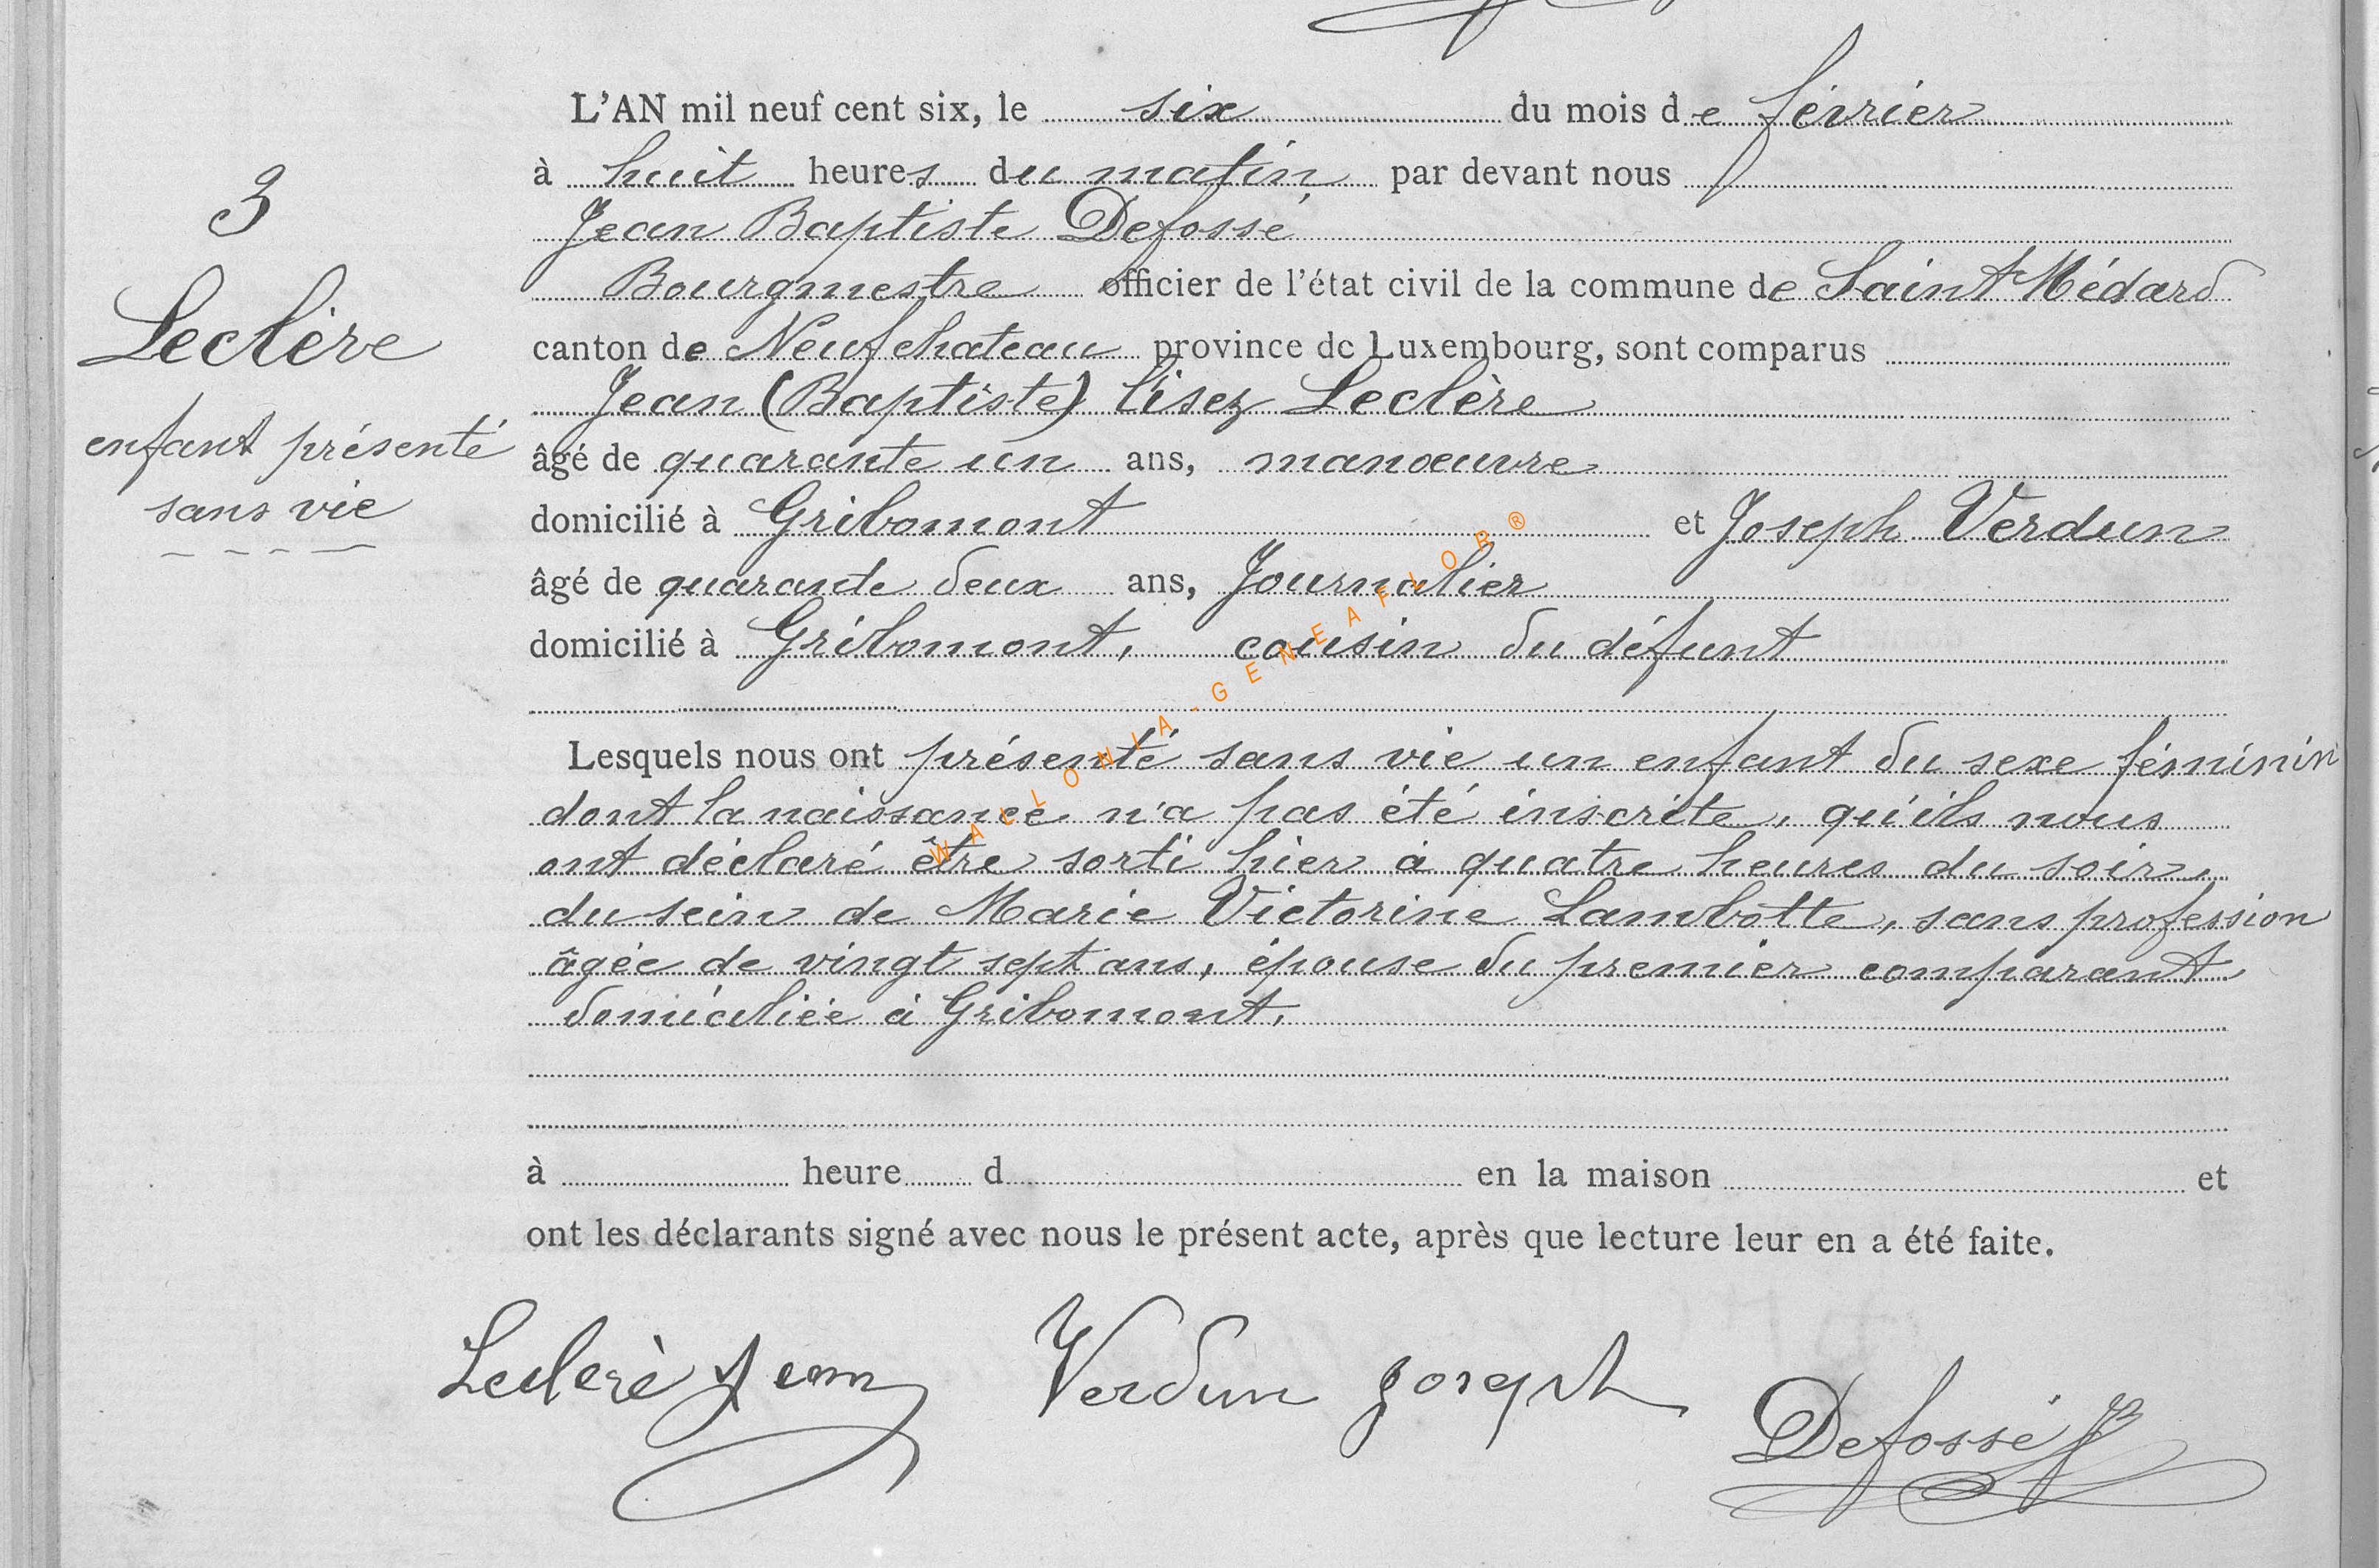 L'AN mil neuf cent six, le six du mois de février
à huit heures du matin par devant nous
3
Jean Baptiste Defossé
Bourgmestre officier de l'état civil de la commune de Saint Médard
Leclère
canton de Neufchateau province de Luxembourg, sont comparus
Jean (Baptiste) lisez Leclère
enfant présenté
âgé de quarante un ans, manoeuvre
sans vie
domicilié à Gribomont et Joseph Verdun
âgé de quarante deux ans, Journalier
domicilié à Gribomont, cousin du défunt
Lesquels nous ont présenté sans vie un enfant du sexe féminin
dont la naissance n'a pas été inscrite, qu'ils nous
ont déclaré être sorti hier à quatre heures du soir,
du sein de Marie Victorine Lambotte, sans profession
âgée de vingt sept ans, épouse du premier comparant,
domiciliée à Gribomont,
à heure d en la maison et
ont les déclarants signé avec nous le présent acte, après que lecture leur en a été faite.
Leclerè Jean Verdun Joseph Defossé JB
WALLONIA-GENEAFLOR®